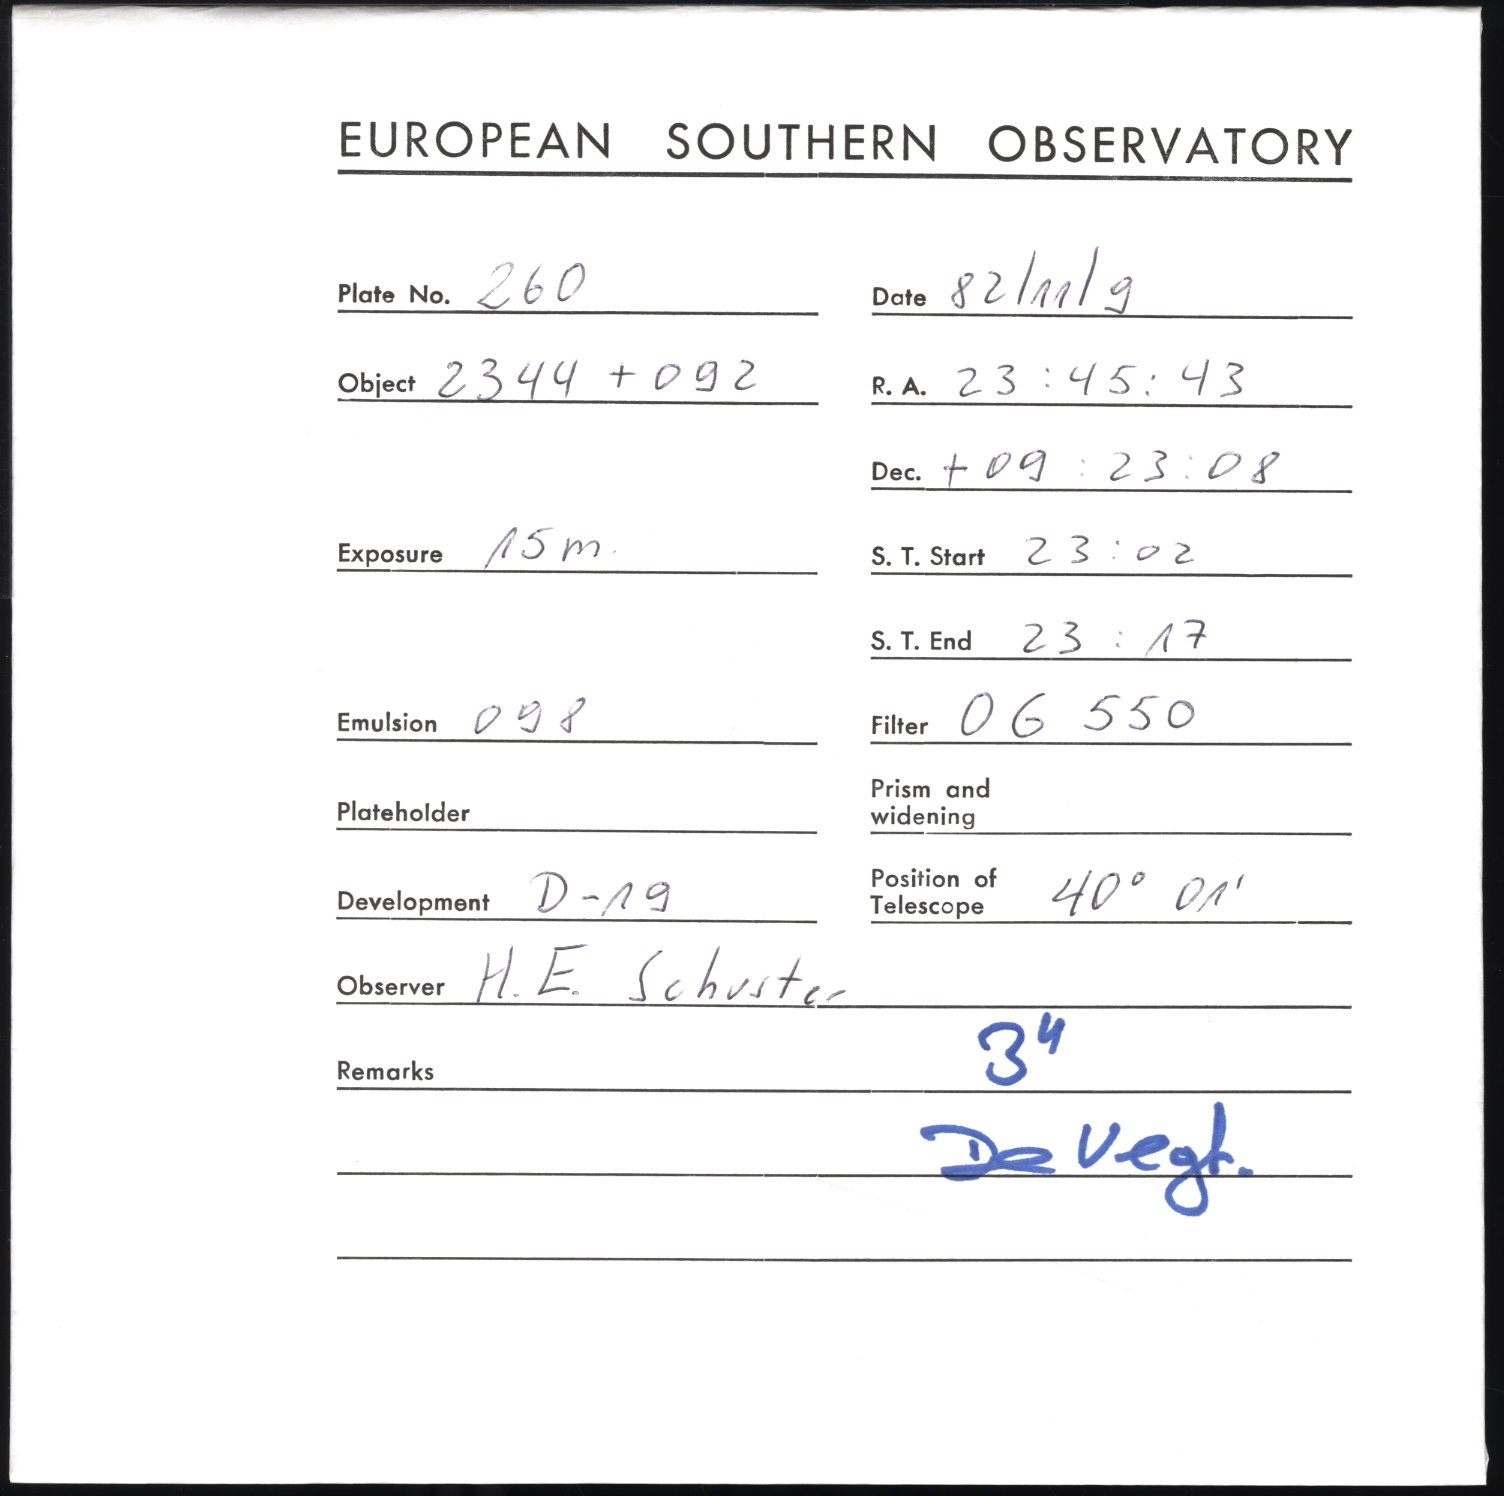 EUROPEAN SOUTHERN OBSERVATORY
Plate No. 260 Date 82/11/9
Object 2344 + 092 R. A. 23 : 45 : 43
Dec. + 09 : 23 : 08
Exposure 15 m. S. T. Start 23 : 02
S. T. End 23 : 17
Emulsion 098 Filter OG 550
Plateholder Prism and
widening
Development D-19 Position of
Telescope 40° 01'
Observer H. E. Schuster
Remarks 3"
De Vegt.